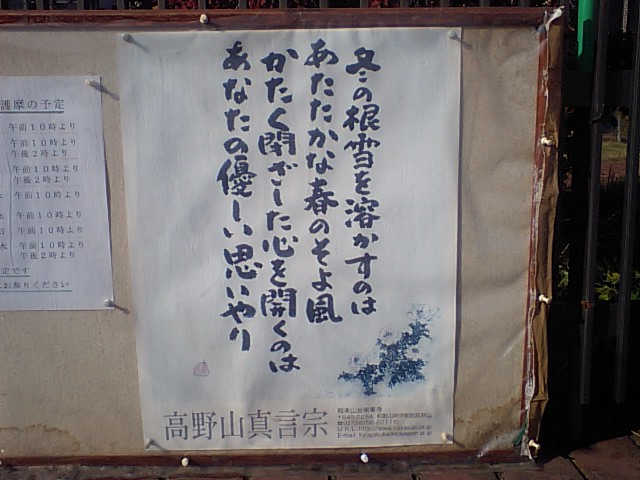 冬の根雪を溶かすのは
あたたかな春のそよ風
かたく閉ざした心を開くのは
あなたの優しい思いやり
高野山真言宗
総本山金剛峯寺
護摩の予定
午前10時より
午前10時より
午後2時より
午前10時より
午後2時より
午前10時より
午前10時より
午前10時より
午前10時より
午後2時より
定です
お参りください